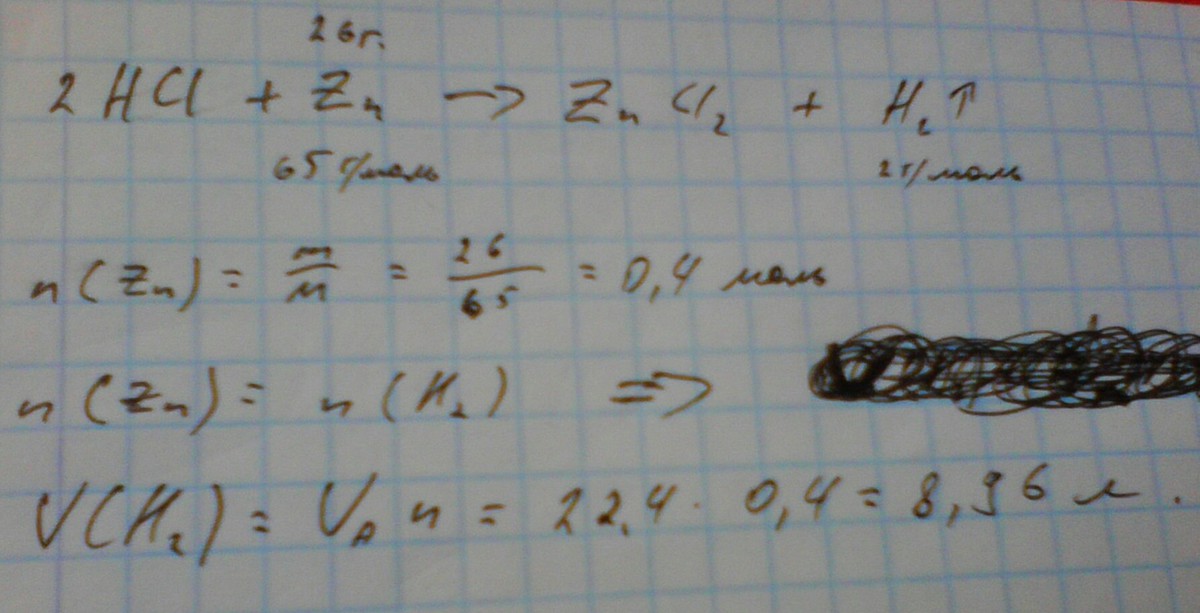 26г.
2 HCl + Zn → ZnCl₂ + H₂↑
65 г/моль 2 г/моль
n(Zn) = m/M = 26/65 = 0,4 моль
n(Zn) = n(H₂) =>
V(H₂) = V_A n = 22,4 · 0,4 = 8,96 л.